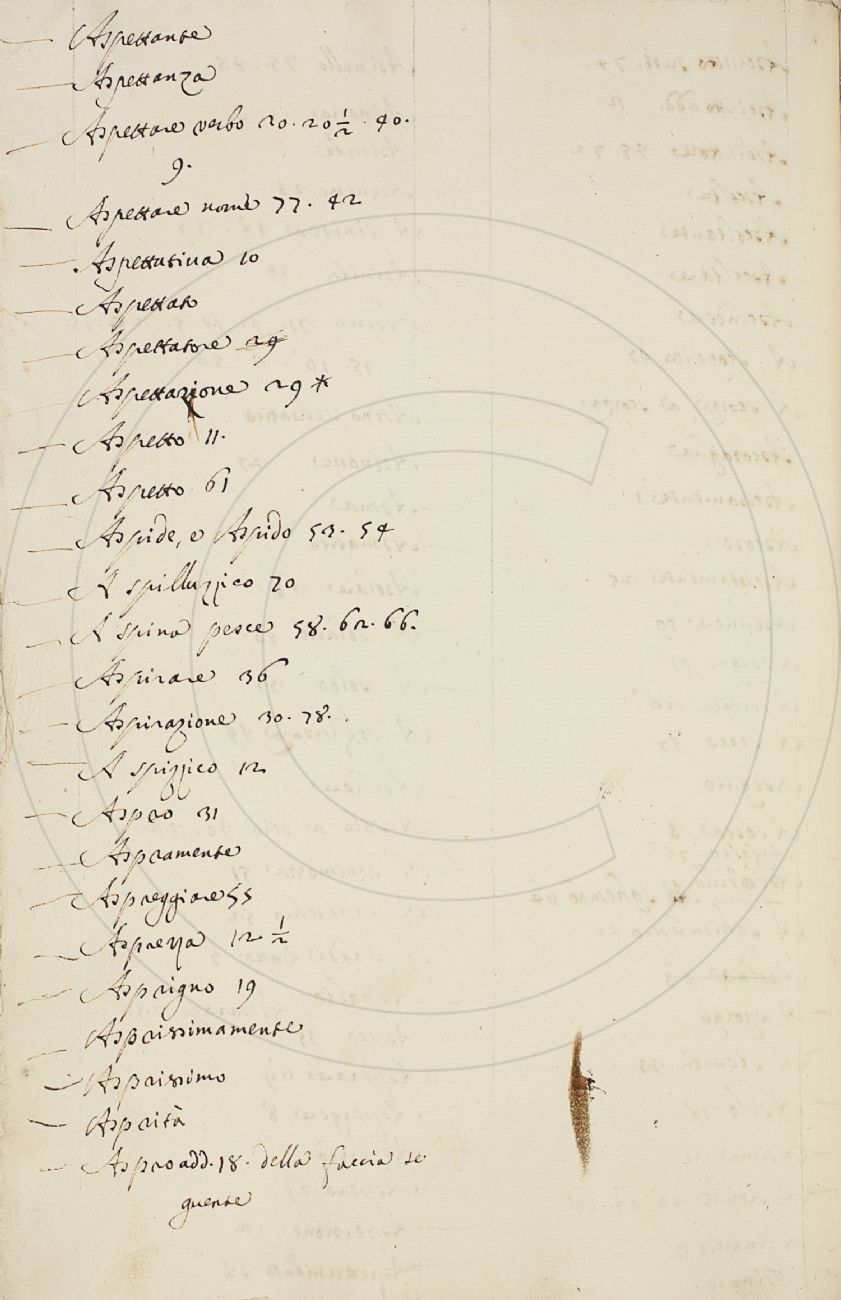 — Aspettante
— Aspettanza
— Aspettare verbo 20. 20 1/2. 40.
9.
— Aspettare nome 77. 42
— Aspettativa 10
— Aspettato
— Aspettatore 29
— Aspettazione 29 *
— Aspetto 11.
— Aspetto 61
— Aspide, e Aspido 53. 54
— A spilluzzico 70
— A spina pesce 58. 62. 66.
— Aspirare 36
— Aspirazione 30. 78.
— A spizzico 12
— Aspro 31
— Aspramente
— Aspreggiare 55
— Asprezza 12. 1/2
— Asprigno 19
— Asprissimamente
— Asprissimo
— Asprità
— Aspro add. 18. della faccia se
guente